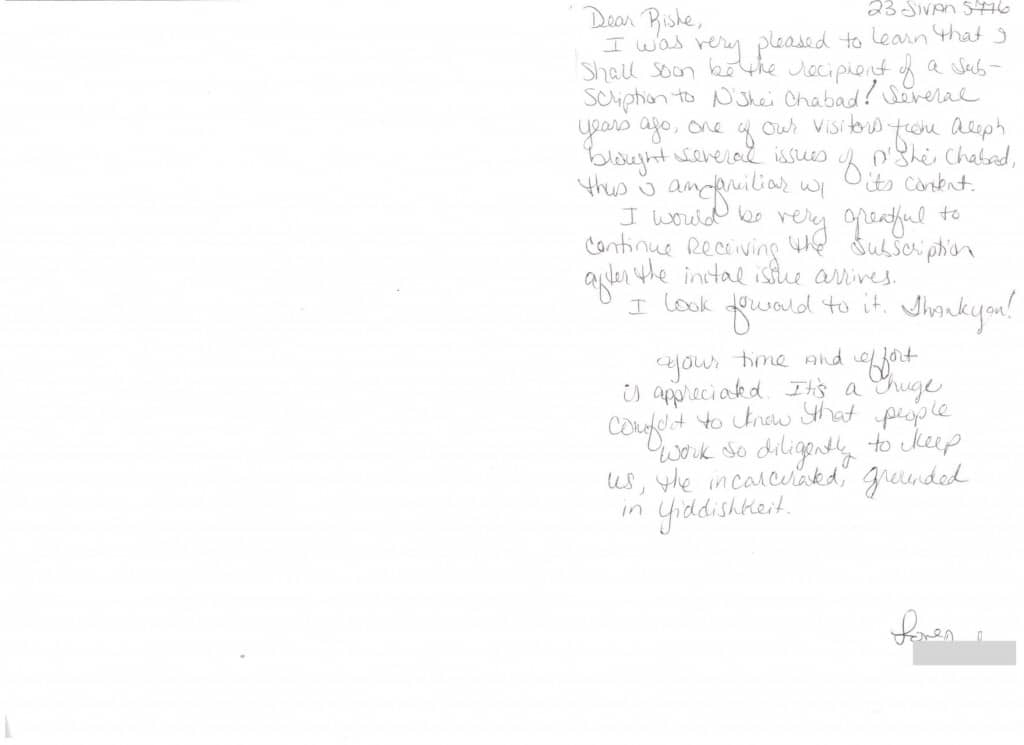 23 Sivan 5776
Dear Rishe,
I was very pleased to learn that I
shall soon be the recipient of a sub-
scription to N'Shei Chabad! Several
years ago, one of our visitors from Aleph
brought several issues of N'Shei Chabad,
thus I am familiar w/ its content.
I would be very greatful to
continue receiving the subscription
after the inital issue arrives.
I look forward to it. Thank you!
Your time and effort
is appreciated. It's a huge
comfort to know that people
work so diligently to keep
us, the incarcerated, grounded
in Yiddishkeit.